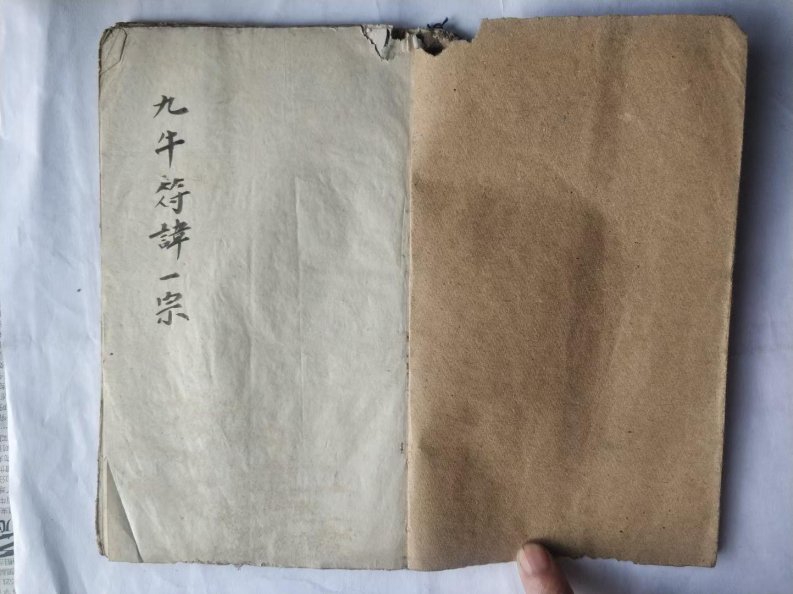 九牛符諱一宗